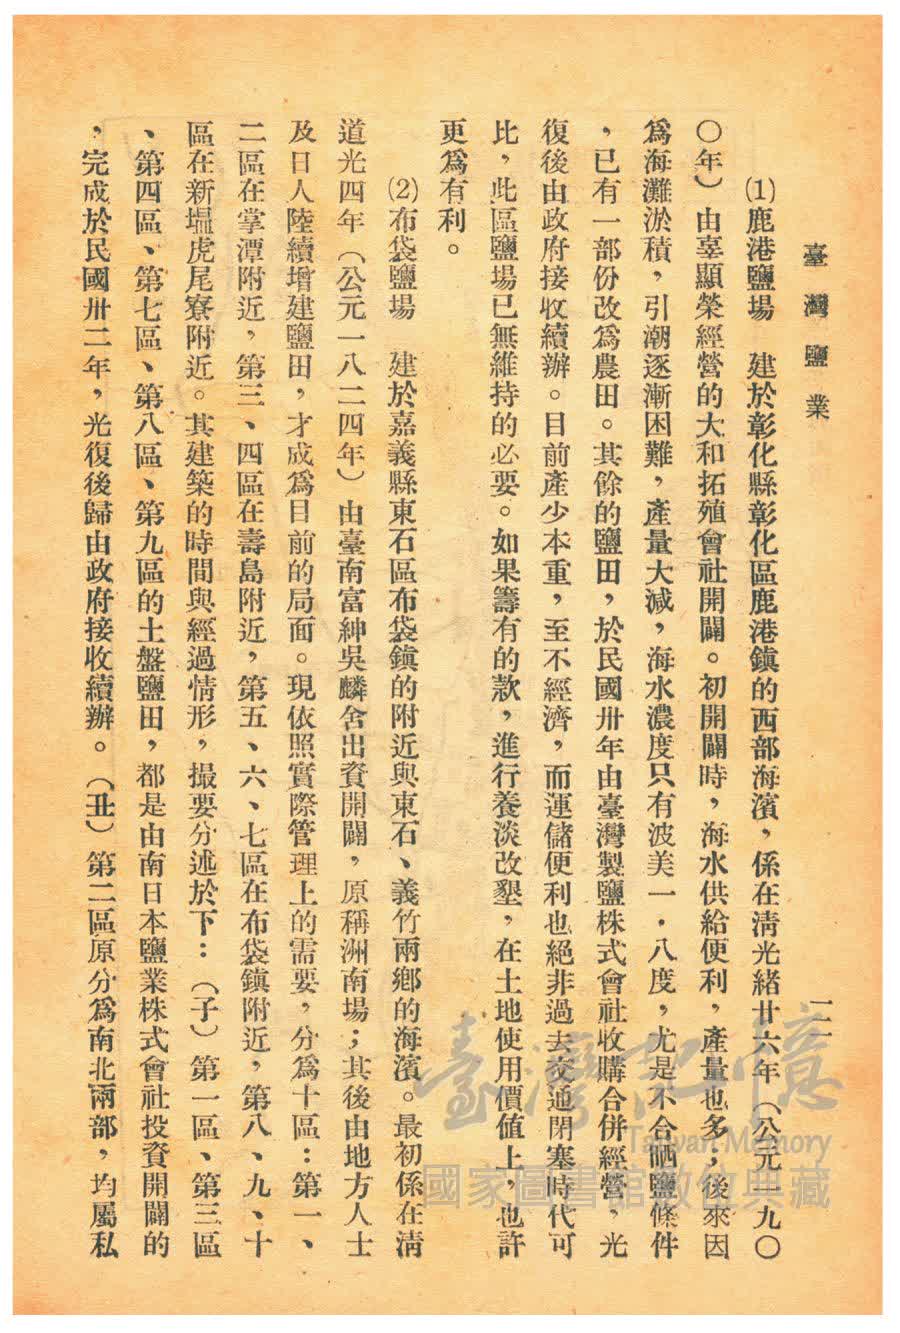 臺灣鹽業
二一
⑴鹿港鹽場　建於彰化縣彰化區鹿港鎮的西部海濱，係在淸光緒廿六年（公元一九〇
〇年）由辜顯榮經營的大和拓殖會社開闢。初開闢時，海水供給便利，產量也多；後來因
爲海灘淤積，引潮逐漸困難，產量大減，海水濃度只有波美一．八度，尤是不合晒鹽條件
，已有一部份改爲農田。其餘的鹽田，於民國卅年由臺灣製鹽株式會社收購合併經營，光
復後由政府接收續辦。目前產少本重，至不經濟，而運儲便利也絕非過去交通閉塞時代可
比，此區鹽場已無維持的必要。如果籌有的款，進行養淡改墾，在土地使用價値上，也許
更爲有利。
⑵布袋鹽場　建於嘉義縣東石區布袋鎮的附近與東石、義竹兩鄉的海濱。最初係在淸
道光四年（公元一八二四年）由臺南富紳吳麟舍出資開闢，原稱洲南場；其後由地方人士
及日人陸續增建鹽田，才成爲目前的局面。現依照實際管理上的需要，分爲十區：第一、
二區在掌潭附近，第三、四區在壽島附近，第五、六、七區在布袋鎮附近，第八、九、十
區在新塭虎尾寮附近。其建築的時間與經過情形，撮要分述於下：（子）第一區、第三區
、第四區、第七區、第八區、第九區的土盤鹽田，都是由南日本鹽業株式會社投資開闢的
，完成於民國卅二年，光復後歸由政府接收續辦。（丑）第二區原分爲南北兩部，均屬私
臺灣記憶
Taiwan Memory
國家圖書館數位典藏